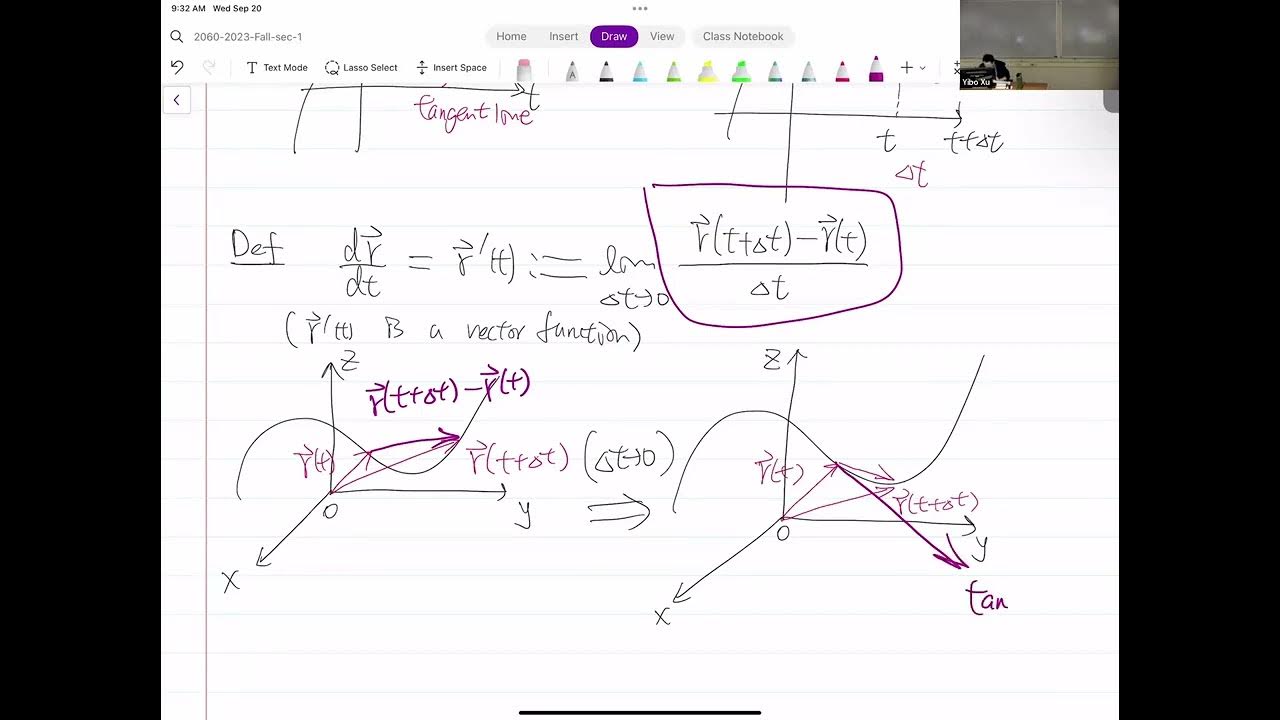 9:32 AM Wed Sep 20
2060-2023-Fall-sec-1
Home Insert Draw View Class Notebook
Text Mode Lasso Select Insert Space
Yibo Xu
t
tangent line
t t+Δt
Δt
Def dr⃗/dt = r⃗'(t) := lim Δt→0 (r⃗(t+Δt)-r⃗(t))/Δt
(r⃗'(t) is a vector function)
z
r⃗(t+Δt)-r⃗(t)
r⃗(t)
r⃗(t+Δt)
(Δt→0)
⇒
0
y
x
z
r⃗(t)
r⃗(t+Δt)
0
y
x
tan